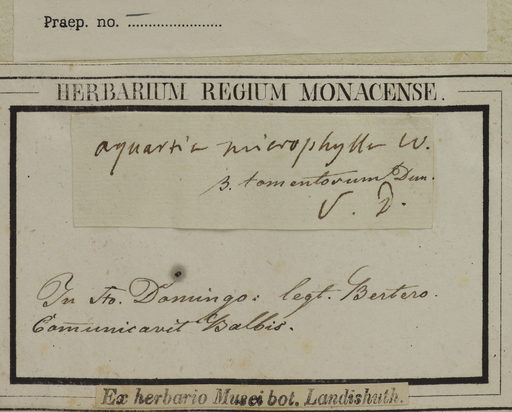 Praep. no. ........................
HERBARIUM REGIUM MONACENSE.
aquartia microphylla W.
β. tomentosum Dun.
V. D.
In Sto. Domingo: legt. Bertero.
Comunicavit Balbis.
Ex herbario Musei bot. Landishuth.